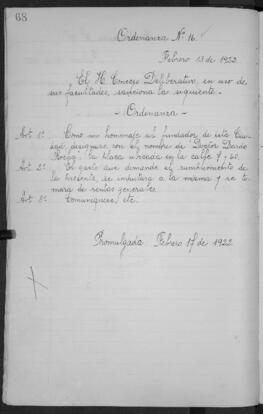 68
Ordenanza Nº 16
Febrero 13 de 1922.
El H. Concejo Deliberativo, en uso de
sus facultades, sanciona la siguiente.
- Ordenanza -
Art 1º Como un homenaje al fundador de esta Ciu-
dad, designase con el nombre de Doctor Dardo
Rocha, la plaza ubicada en la calle 7 y 60.
Art 2º El gasto que demande el cumplimiento de
la presente, se imputará a la misma y se to-
mara de rentas generales.
Art 3º Comuniquese, etc.
Promulgada Febrero 17 de 1922.